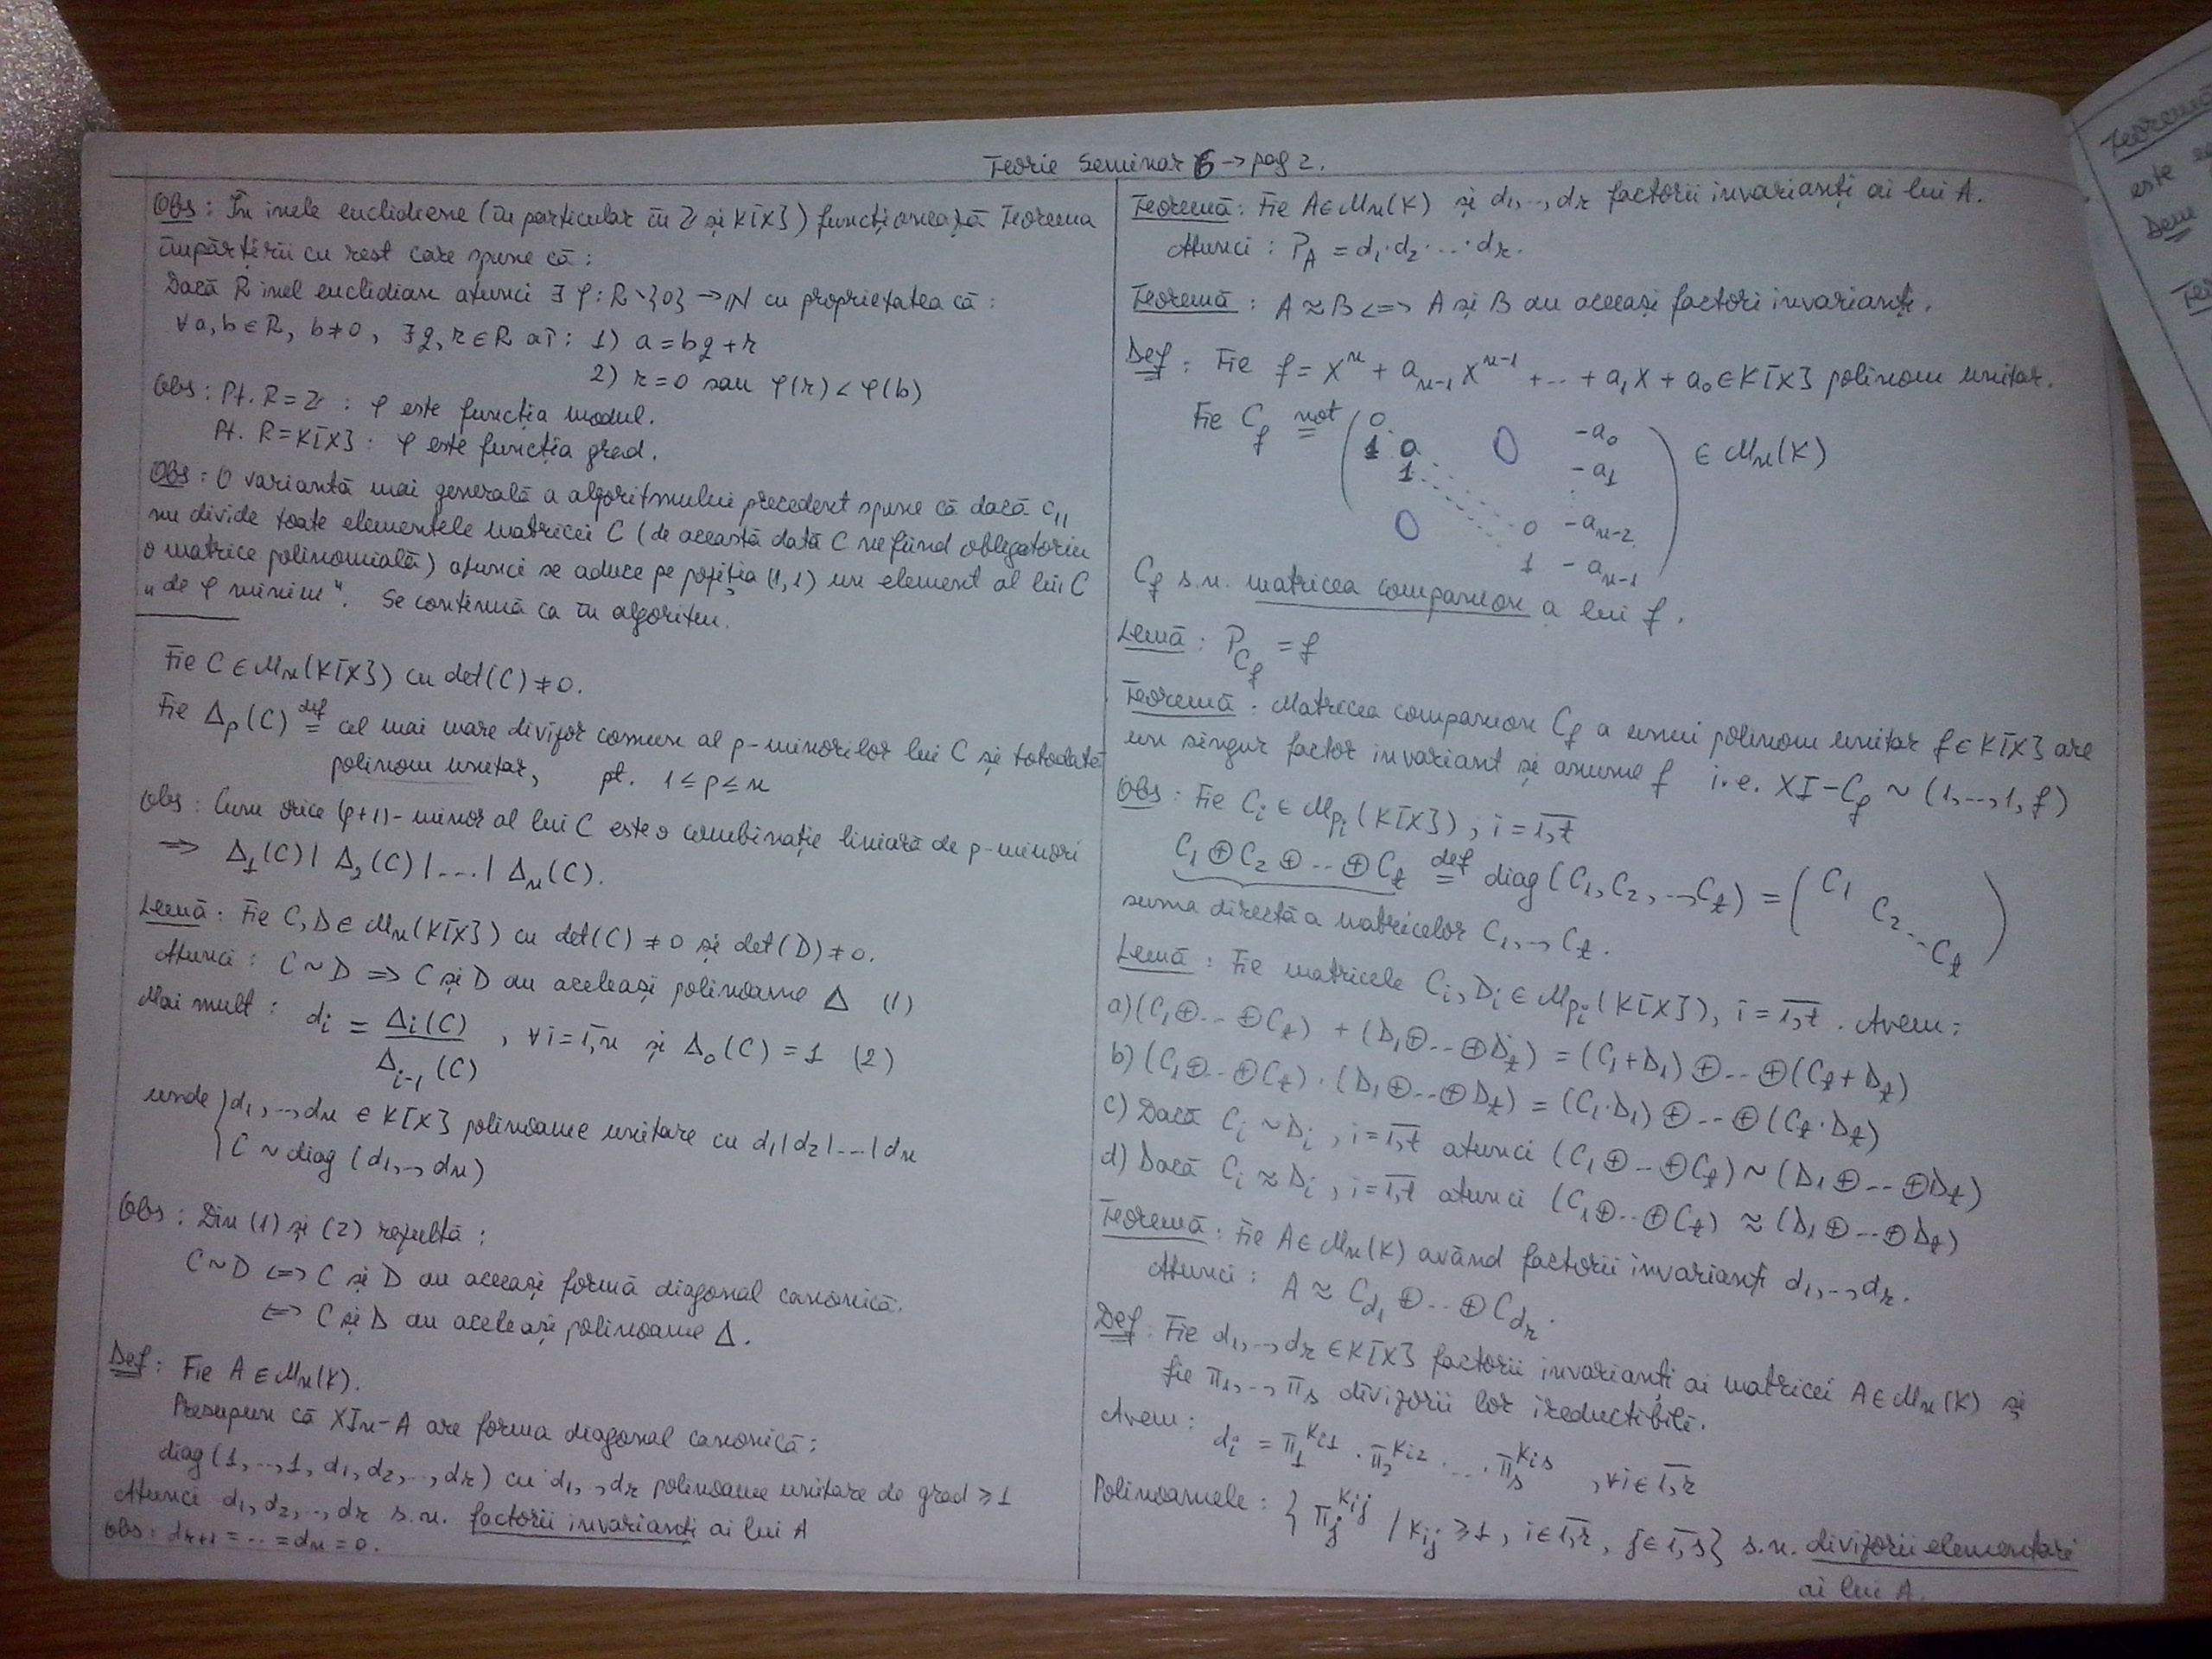 Teorie Seminar 6 → pag 2.
Obs: În inele euclidiene (în particular în ℤ și K[X]) funcționează Teorema
împărțirii cu rest care spune că:
Dacă R inel euclidian atunci ∃ φ: R\{0} → ℕ cu proprietatea că:
∀a,b∈R, b≠0, ∃q,r∈R aî: 1) a=bq+r
2) r=0 sau φ(r)<φ(b)
Obs: Pt. R=ℤ : φ este funcția modul.
Pt. R=K[X] : φ este funcția grad.
Obs: O variantă mai generală a algoritmului precedent spune că dacă c₁₁
nu divide toate elementele matricei C (de această dată C nefiind obligatoriu
o matrice polinomială) atunci se aduce pe poziția (1,1) un element al lui C
"de φ minim". Se continuă ca în algoritm.
Fie C∈Mₙ(K[X]) cu det(C)≠0.
Fie Δₚ(C) def= cel mai mare divizor comun al p-minorilor lui C și totodată
polinom unitar, pt. 1≤p≤n
Obs: Cum orice (p+1)-minor al lui C este o combinație liniară de p-minori
⇒ Δ₁(C) | Δ₂(C) | .... | Δₙ(C).
Lemă: Fie C,D∈Mₙ(K[X]) cu det(C)≠0 și det(D)≠0.
Atunci: C~D ⇒ C și D au aceleași polinoame Δ (1)
Mai mult: dᵢ = Δᵢ(C)/Δᵢ₋₁(C), ∀i=1,n și Δ₀(C)=1 (2)
unde { d₁,..,dₙ ∈ K[X] polinoame unitare cu d₁|d₂|...|dₙ
C ~ diag(d₁,..,dₙ)
Obs: Din (1) și (2) rezultă:
C~D ⟺ C și D au aceeași formă diagonal canonică.
⟺ C și D au aceleași polinoame Δ.
Def: Fie A∈Mₙ(K).
Presupun că XIₙ-A are forma diagonal canonică:
diag(1,..,1,d₁,d₂,..,dᵣ) cu d₁,..,dᵣ polinoame unitare de grad ≥1
Atunci d₁,d₂,..,dᵣ s.n. factorii invarianți ai lui A
Obs: dᵣ₊₁=..=dₙ=0.
Teoremă: Fie A∈Mₙ(K) și d₁,..,dᵣ factorii invarianți ai lui A.
Atunci: P_A = d₁·d₂·...·dᵣ.
Teoremă: A≈B ⟺ A și B au aceeași factori invarianți.
Def: Fie f = Xⁿ + aₙ₋₁Xⁿ⁻¹ +..+ a₁X + a₀∈K[X] polinom unitar.
Fie C_f not= ( 0 0 -a₀
1 0 -a₁
1 ⋮
0 0 -aₙ₋₂
1 -aₙ₋₁ ) ∈ Mₙ(K)
C_f s.n. matricea companion a lui f.
Lemă: P_{C_f} = f
Teoremă: Matricea companion C_f a unui polinom unitar f∈K[X] are
un singur factor invariant și anume f i.e. XI-C_f ~ (1,..,1,f)
Obs: Fie Cᵢ∈M_{pᵢ}(K[X]), i=1,t
C₁⊕C₂⊕...⊕Cₜ def= diag(C₁,C₂,..,Cₜ) = ( C₁ C₂ .. Cₜ )
suma directă a matricelor C₁,..,Cₜ.
Lemă: Fie matricele Cᵢ,Dᵢ∈M_{pᵢ}(K[X]), i=1,t. Avem:
a) (C₁⊕..⊕Cₜ) + (D₁⊕..⊕Dₜ) = (C₁+D₁)⊕..⊕(Cₜ+Dₜ)
b) (C₁⊕..⊕Cₜ)·(D₁⊕..⊕Dₜ) = (C₁·D₁)⊕..⊕(Cₜ·Dₜ)
c) Dacă Cᵢ~Dᵢ, i=1,t atunci (C₁⊕..⊕Cₜ)~(D₁⊕..⊕Dₜ)
d) Dacă Cᵢ≈Dᵢ, i=1,t atunci (C₁⊕..⊕Cₜ)≈(D₁⊕..⊕Dₜ)
Teoremă: Fie A∈Mₙ(K) având factorii invarianți d₁,..,dᵣ.
Atunci: A ≈ C_{d₁}⊕..⊕C_{dᵣ}.
Def: Fie d₁,..,dᵣ∈K[X] factorii invarianți ai matricei A∈Mₙ(K) și
fie π₁,..,πₛ divizorii lor ireductibili.
Avem: dᵢ = π₁^{kᵢ₁}·π₂^{kᵢ₂}·...·πₛ^{kᵢₛ}, ∀i∈1,r
Polinoamele: { πⱼ^{kᵢⱼ} / kᵢⱼ≥1, i∈1,r, j∈1,s} s.n. divizorii elementari
ai lui A.
Teoremă
este
Dem